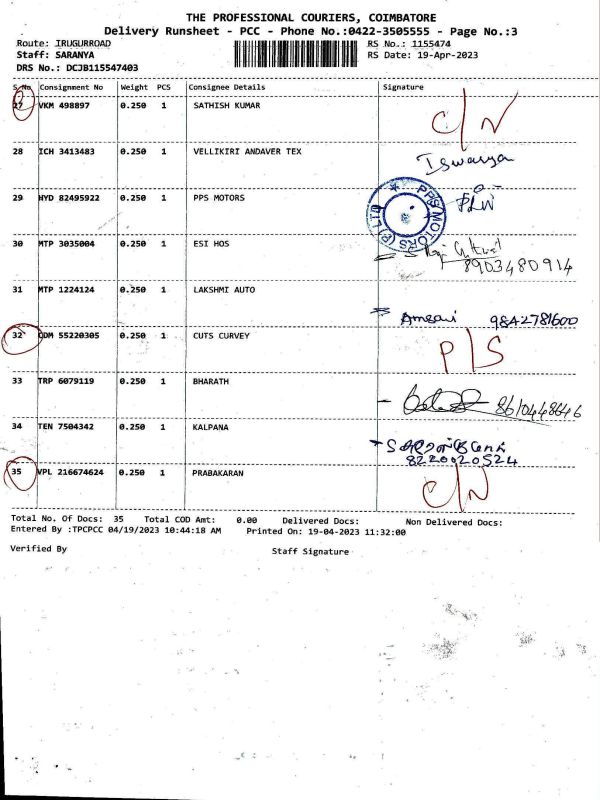 THE PROFESSIONAL COURIERS, COIMBATORE
Delivery Runsheet - PCC - Phone No.:0422-3505555 - Page No.:3
Route: IRUGURROAD RS No.: 1155474
Staff: SARANYA RS Date: 19-Apr-2023
DRS No.: DCJB115547403
S.No Consignment No Weight PCS Consignee Details Signature
27 VKM 498897 0.250 1 SATHISH KUMAR C/N
28 ICH 3413483 0.250 1 VELLIKIRI ANDAVER TEX Iswarya
29 HYD 82495922 0.250 1 PPS MOTORS
PPS MOTORS (P) LTD
30 MTP 3035004 0.250 1 ESI HOS
8903480914
31 MTP 1224124 0.250 1 LAKSHMI AUTO
9842781600
32 DDM 55220305 0.250 1 CUTS CURVEY P/S
33 TRP 6079119 0.250 1 BHARATH 8610448646
34 TEN 7504342 0.250 1 KALPANA
8220020524
35 VPL 216674624 0.250 1 PRABAKARAN C/N
Total No. Of Docs: 35 Total COD Amt: 0.00 Delivered Docs: Non Delivered Docs:
Entered By :TPCPCC 04/19/2023 10:44:18 AM Printed On: 19-04-2023 11:32:00
Verified By Staff Signature